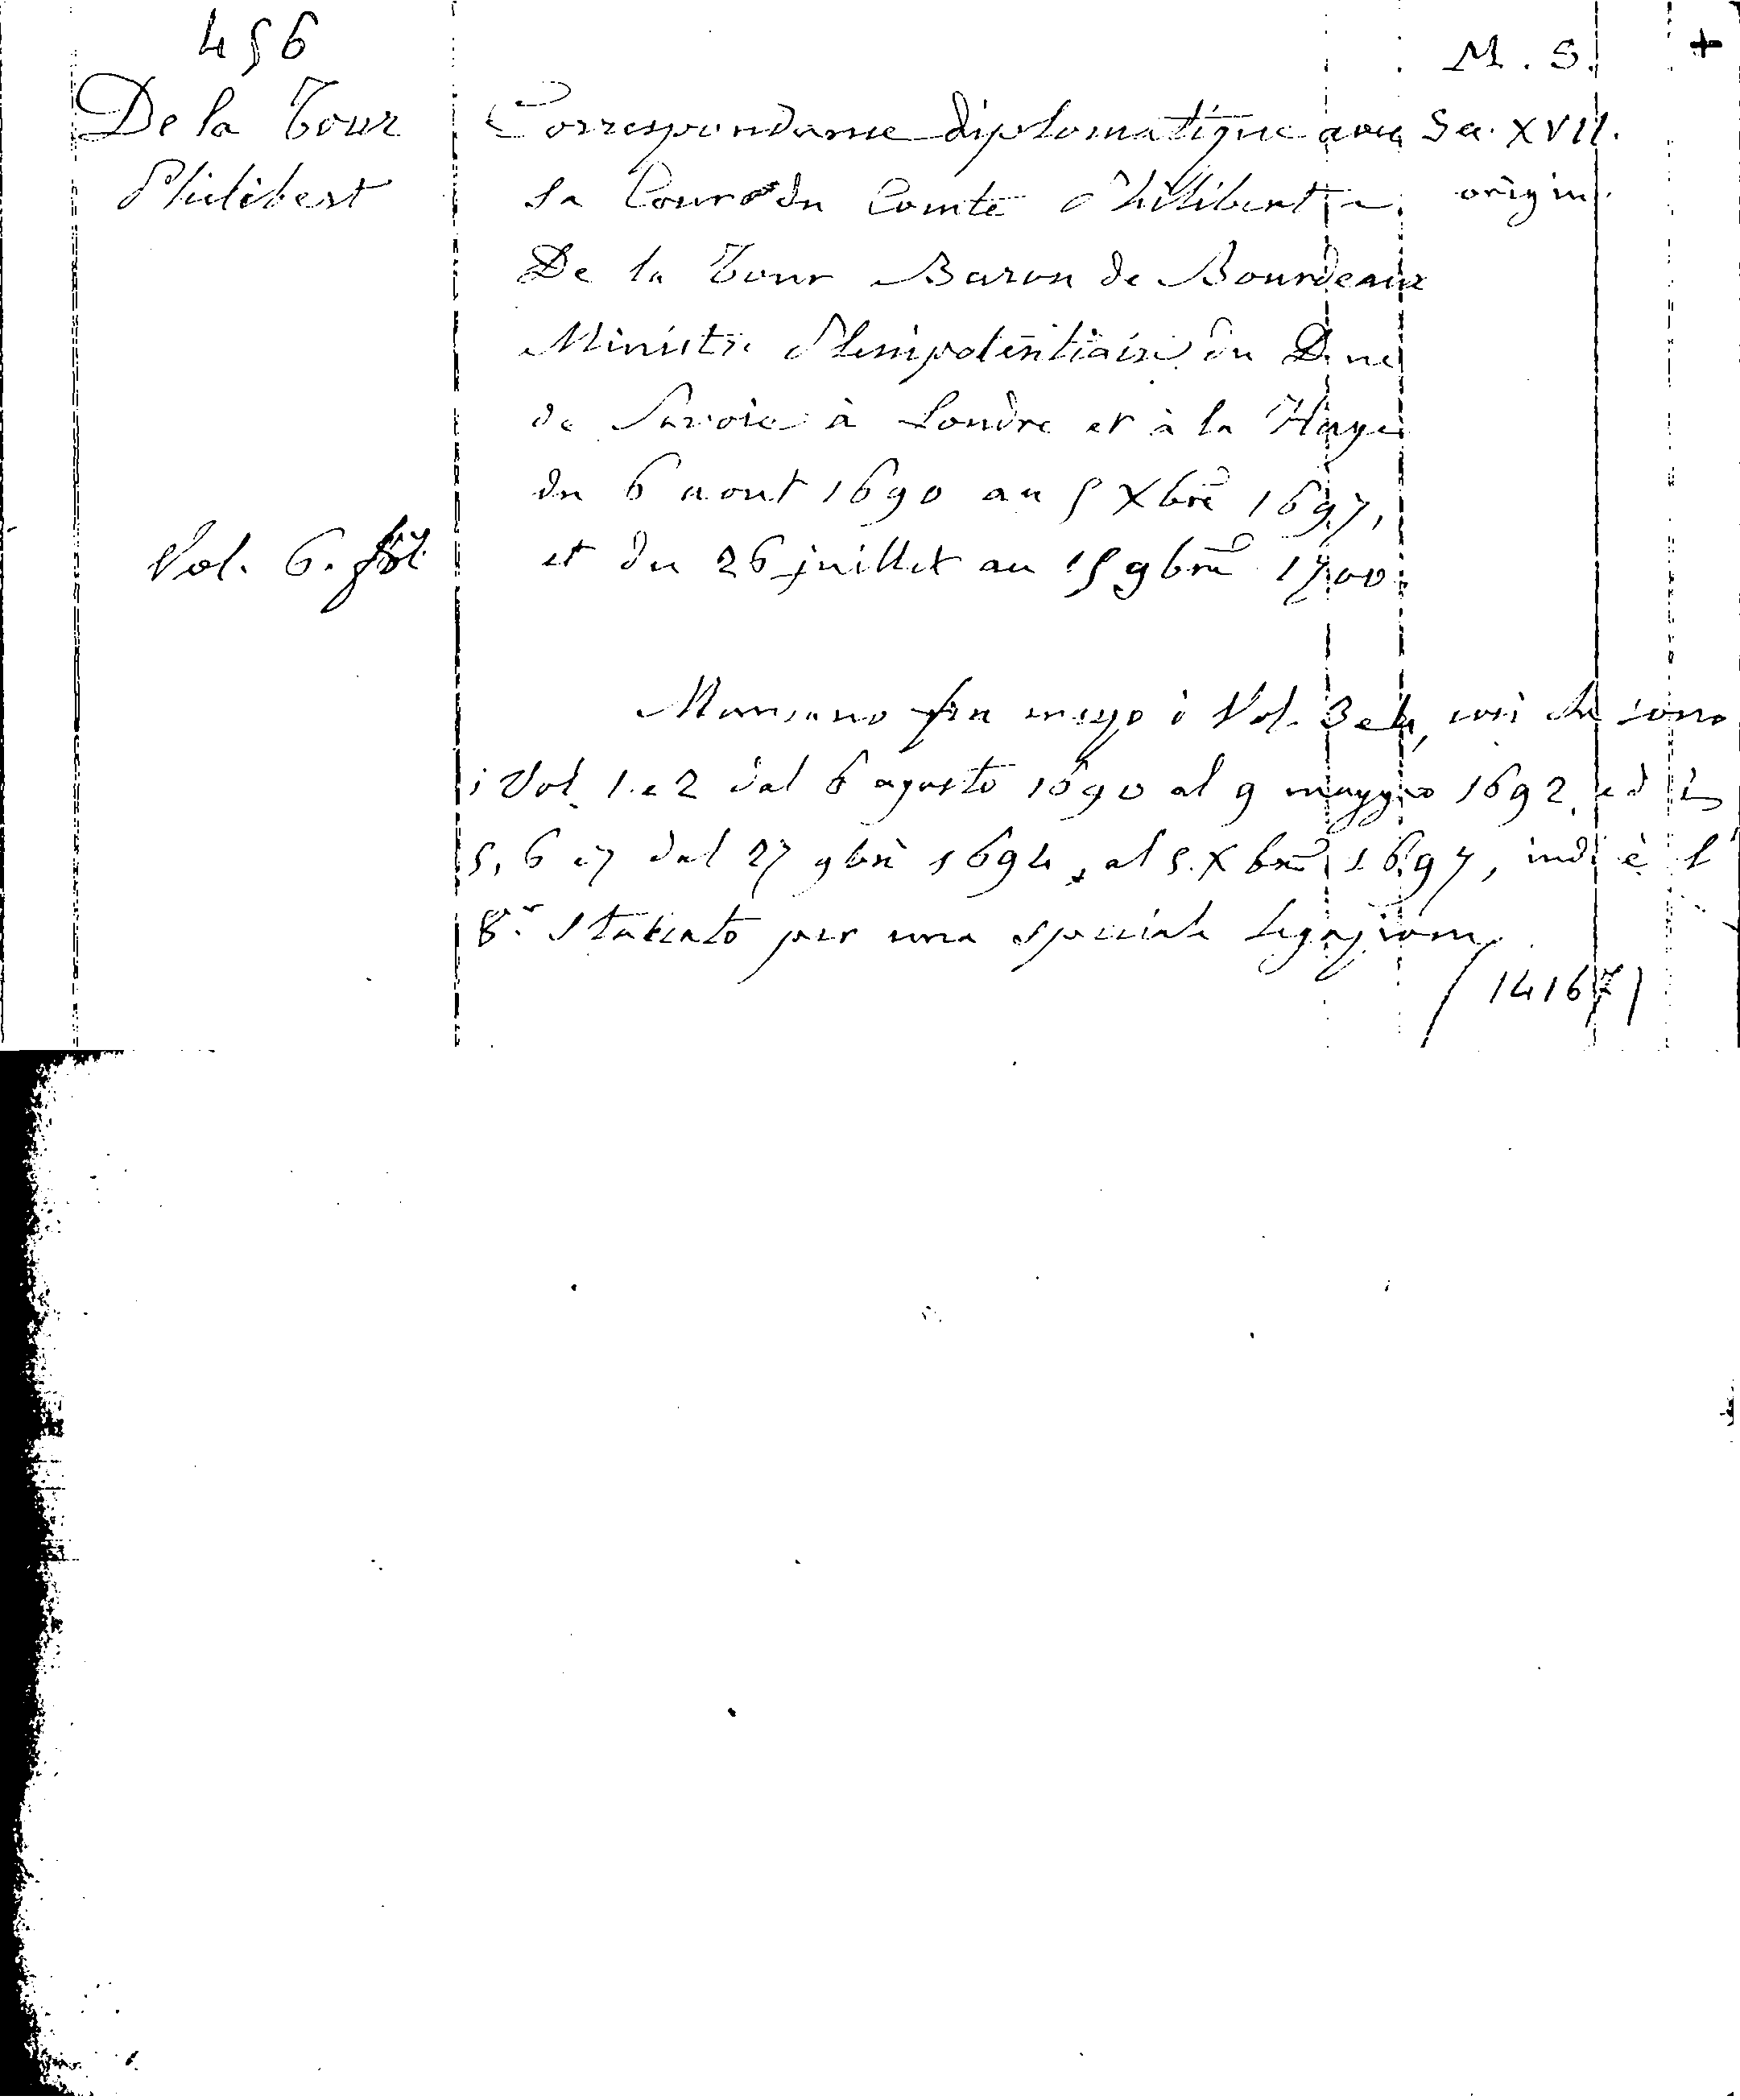 456
M. S. +
De la Tour
Philibert
Correspondance diplomatique avec
sa Cour du Comte Philibert
De la Tour Baron de Bourdeaux
Ministre Plenipotentiaire du Duc
de Savoie à Londre et à la Haye
du 6 aout 1690 au 5 Xbre 1697,
et du 26 juillet au 15 9bre 1700.
Sec. XVII.
origin.
Vol. 6. fol.
Mancano fra mezzo i Vol. 3 e 4, così che sono
i Vol. 1. e 2 dal 6 agosto 1690 al 9 maggio 1692, ed i
5, 6 e 7 dal 27 9bre 1694, al 5. Xbre 1697, indi è l'
8.º staccato per una speciale legazione
(14167)